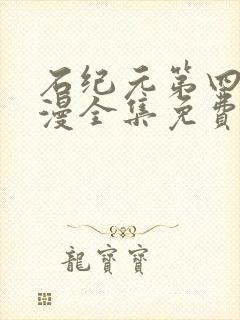 石纪元第四
漫全集免费
龍寶寶